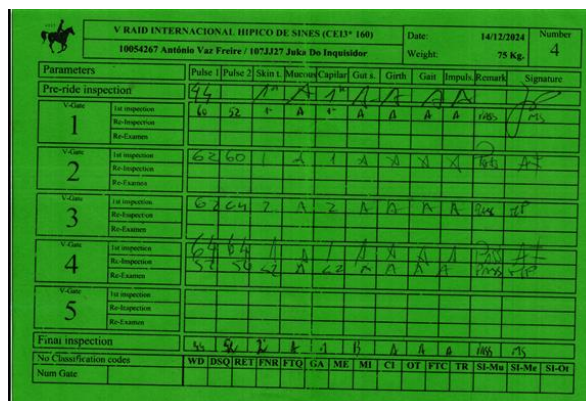 V RAID INTERNACIONAL HIPICO DE SINES (CEI3* 160) Date: 14/12/2024 Number
10054267 António Vaz Freire / 107JJ27 Juka Do Inquisidor Weight: 75 Kg. 4
Parameters Pulse 1 Pulse 2 Skin t. Mucous Capilar Gut s. Girth Gait Impuls. Remark Signature
Pre-ride inspection 44 1" A 1" A A A A
V-Gate 1st inspection 60 52 1" A 1" A A A A pass MS
1 Re-Inspection
Re-Examen
V-Gate 1st inspection 62 60 1 1 A A A A
2 Re-Inspection
Re-Examen
V-Gate 1st inspection 62 64 2 A 2 A A A A
3 Re-Inspection
Re-Examen
V-Gate 1st inspection 64 64 1 A 1 A A A Pass
4 Re-Inspection 52 <2 A <2 A A A Pass
Re-Examen
V-Gate 1st inspection
5 Re-Inspection
Re-Examen
Final inspection A A A pass MS
No Classification codes WD DSQ RET FNR FTQ GA ME MI CI OT FTC TR SI-Mu SI-Me SI-Ot
Num Gate